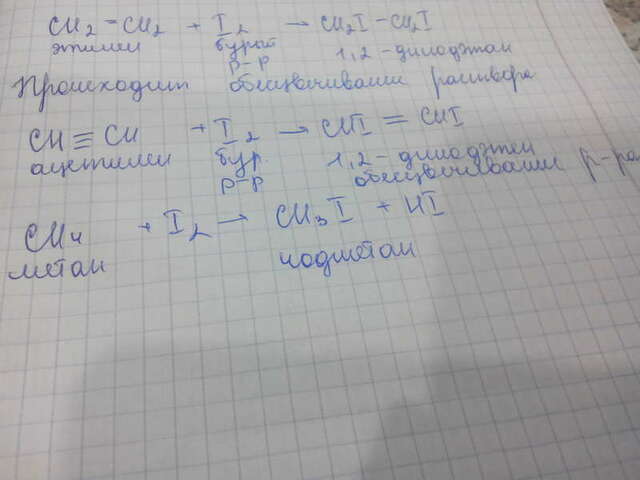 CH2 = CH2 + I2 → CH2I - CH2I
этилен бурый 1,2 - дииодэтан
р-р
Происходит обесцвечивание раствора
CH ≡ CH + I2 → CHI = CHI
ацетилен бур. 1,2 - дииодэтен
р-р обесцвечивание р-ра
CH4 + I2 → CH3I + HI
метан иодметан